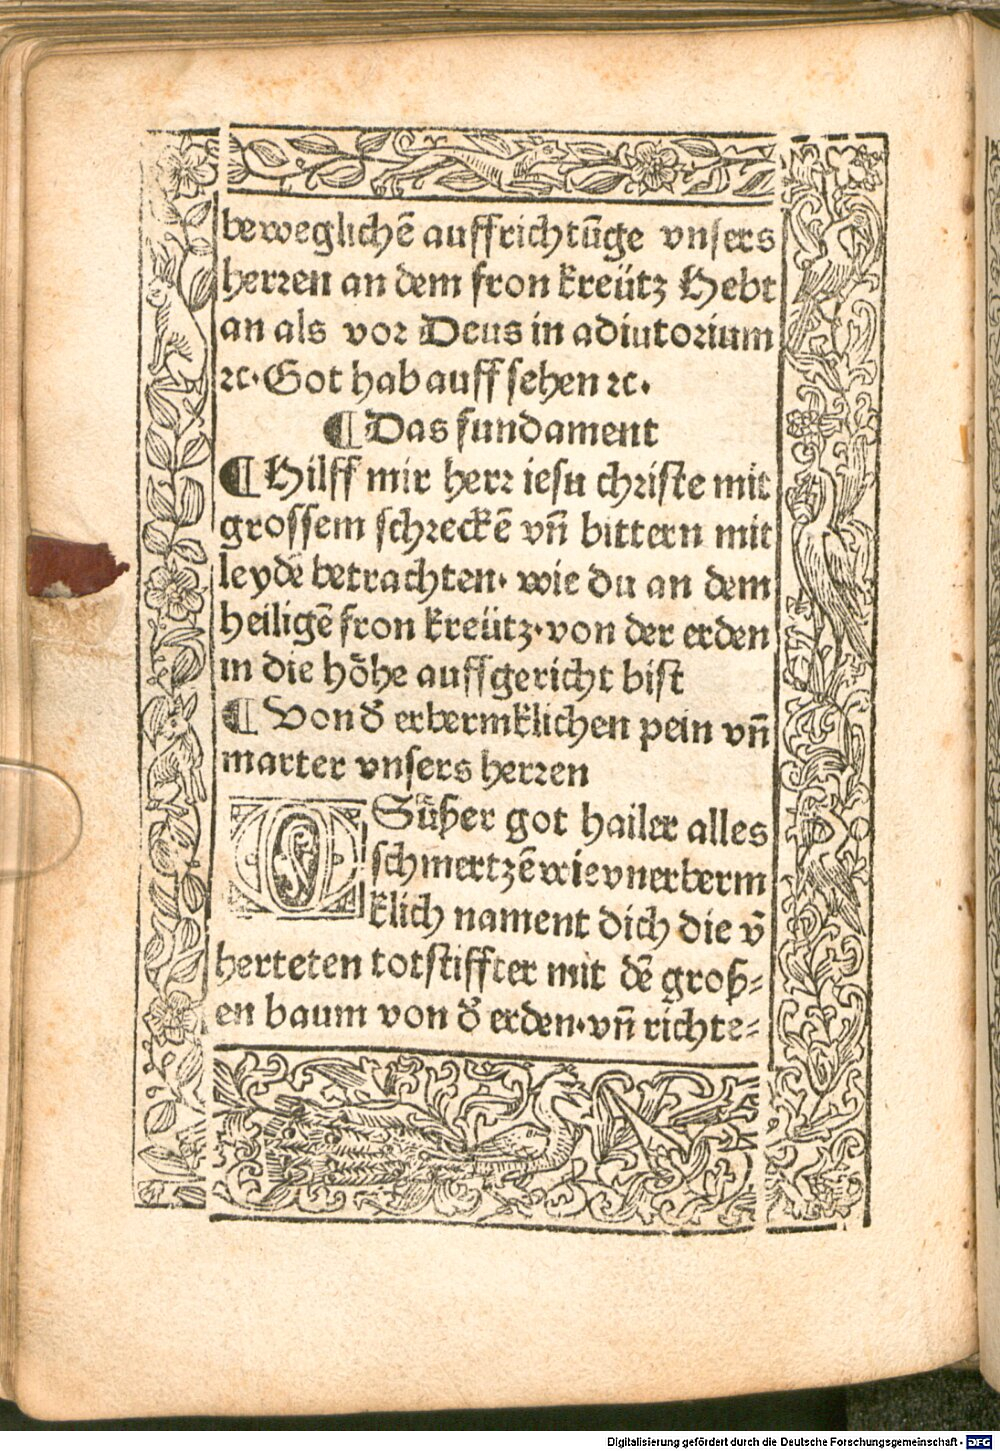 beweglichē auffrichtūge vnsers
herren an dem fron kreütz Hebt
an als vor Deus in adiutorium
ꝛc. Got hab auff sehen ꝛc.
¶ Das fundament
¶ Hilff mir herr iesu christe mit
grossem schreckē vn̄ bittern mit
leydē betrachten. wie du an dem
heiligē fron kreütz. von der erden
in die höhe auffgericht bist
¶ Von d̕ erbermklichen pein vn̄
marter vnsers herren
O Süßer got hailer alles
schmertzē wie vnerberm
klich nament dich die v̄
herteten totstiffter mit dē groß⸗
en baum von d̕ erden. vn̄ richte⸗
Digitalisierung gefördert durch die Deutsche Forschungsgemeinschaft - DFG